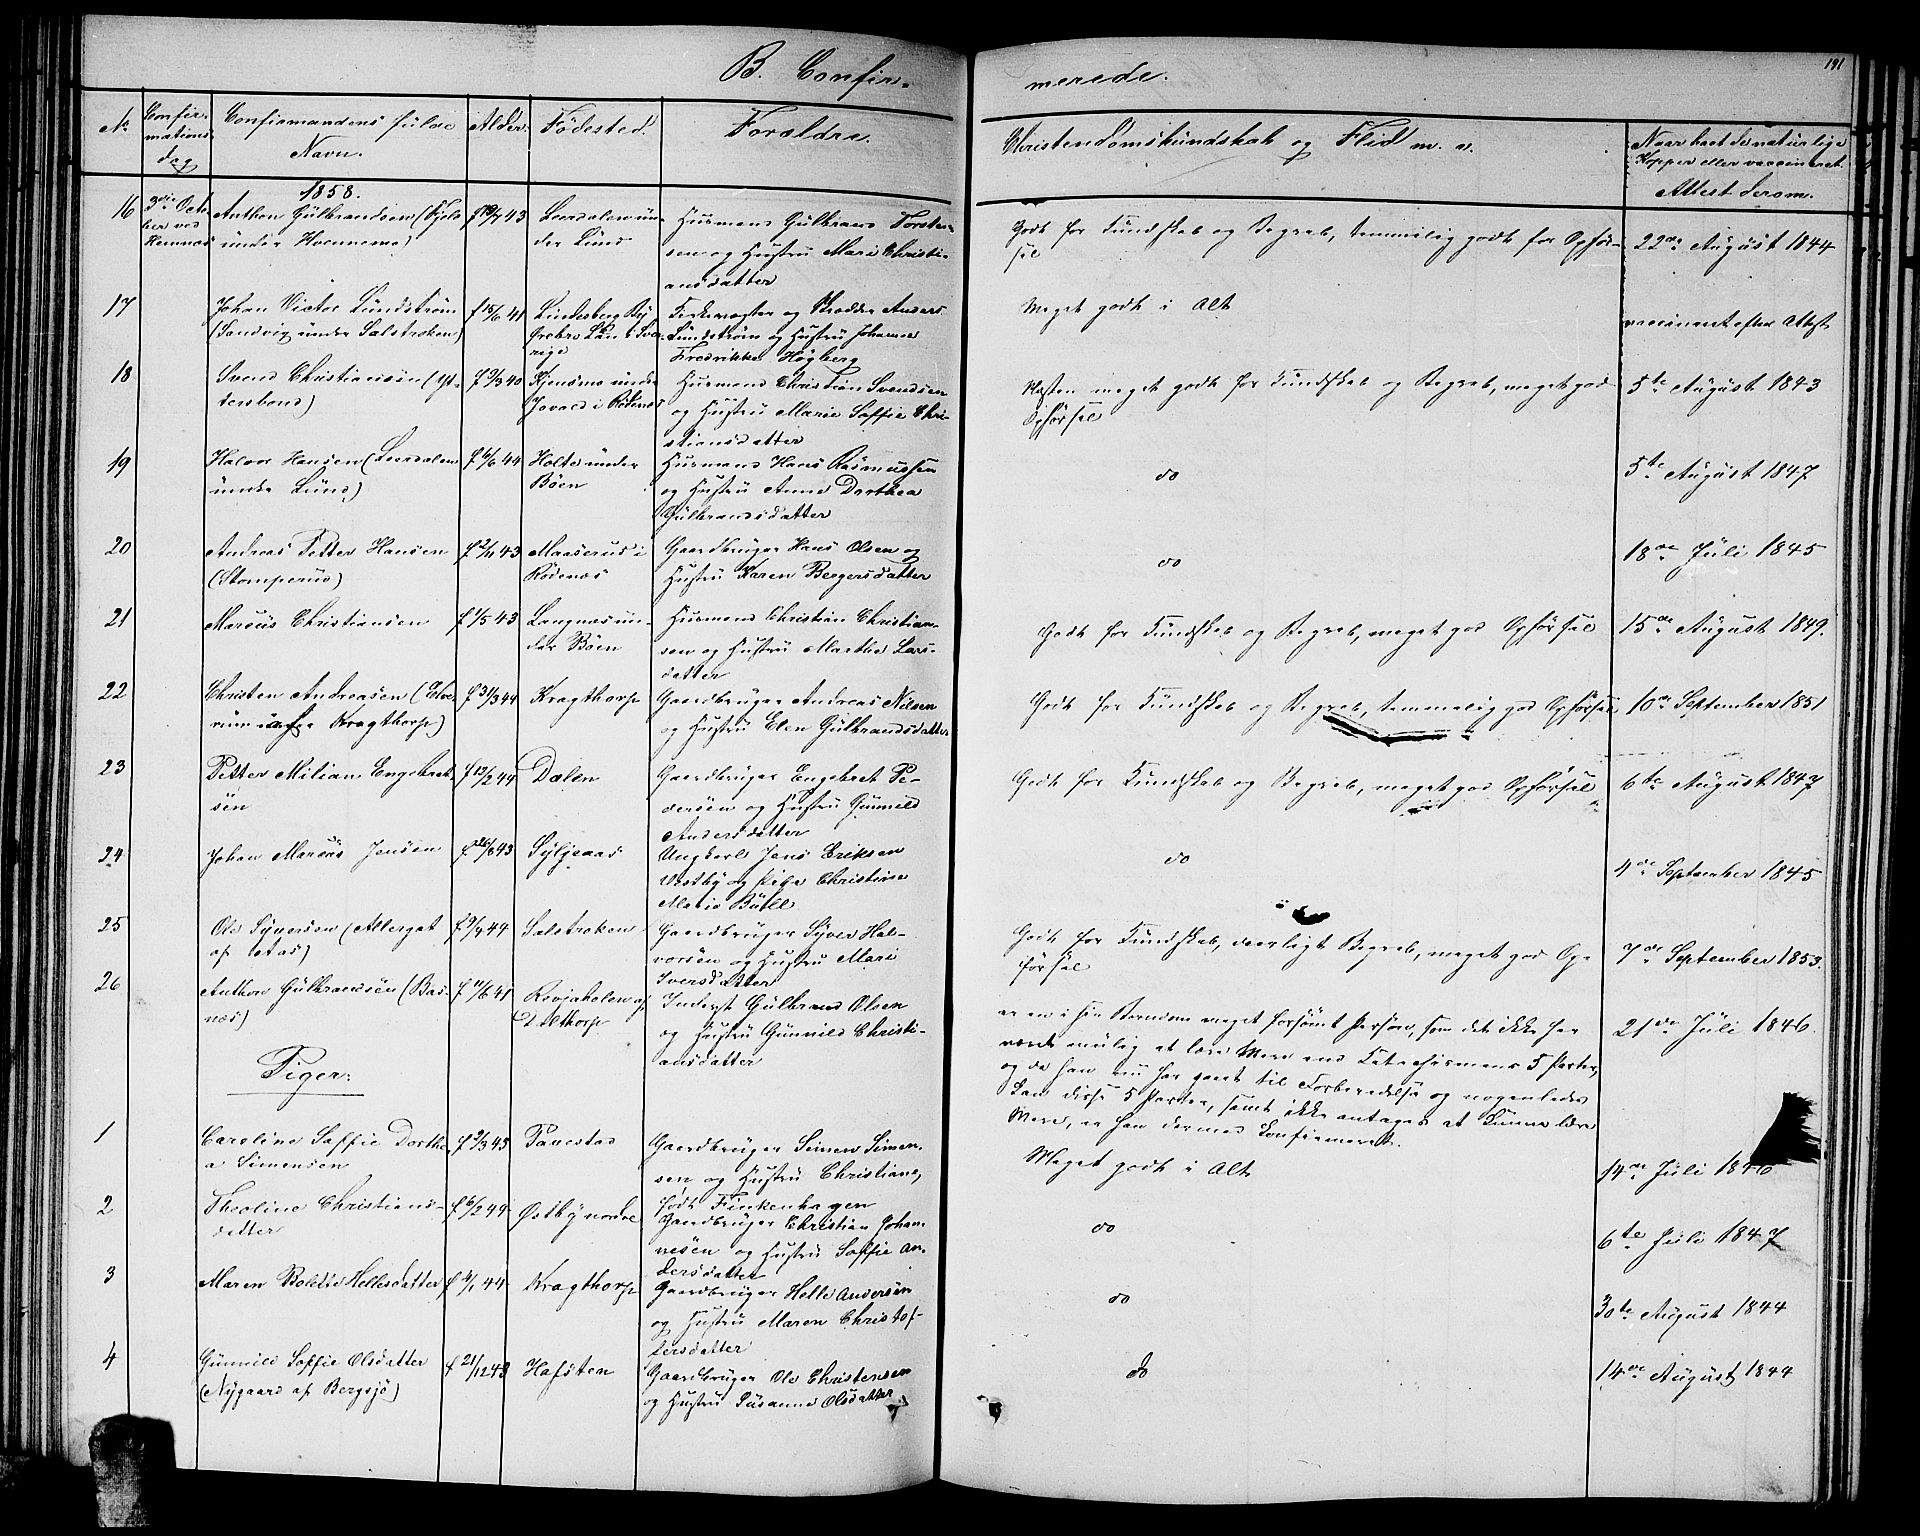 B. Confir=
merede.
191
No
Confir-
mations
dag
Confirmandens fulde
Navn.
Alder.
Fødested.
Forældre.
Christendomskundskab og Flid m. v.
Naar havt de naturlige
Kopper eller vaccineret.
Attest derom.
1858.
16
3die Octo-
ber ved
Hemnæs
Anthon Gülbrandsen (Fjeld
under Hvennemo)
f 19/7 43
Leerdalen un-
der Lünd
Husmand Gülbrand Torsten-
sen og Hustru Mari Christi-
ansdatter
Godt for Kundskab og Begreb, temmelig godt for Opfør-
sel
22de August 1844
17
Johan Victor Lündstrøm
(Sandvig under Salstroken)
f 15/6 41
Lindesberg By
Ørebro Län i Sve-
rige
Fredrikke Høgberg
Lündstrøm og Hustru Johanne
Meget godt i Alt
vaccineret efter Attest
18
Svend Christiansen (Yt-
tersbond)
f 9/3 40
under
i Rødenæs
Husmand Christian Svendsen
og Hustru Marie Soffie Chri-
stiansdatter
Næsten meget godt for Kundskab og Begreb, meget god
Opførsel
5te August 1843
19
Halvor Hansen (Leerdalen
under Lünd)
f 6/6 44
Holte under
Böen
Husmand Hans Rasmussen
og Hustru Anne Dorthea
Gülbrandsdatter
do
5te August 1847
20
Andreas Petter Hansen
(Stomperud)
f 2/11 43
Maaserud i
Rödenæs
Gaardbruger Hans Olsen og
Hustru Karen Bergersdatter
do
18de Jüli 1845
21
Marcüs Christiansen
f 1/5 43
Langnæs un-
der Böen
Husmand Christian Christian-
sen og Hustru Marthe Lars-
datter
Godt for Kundskab og Begreb, meget god Opførsel
15de August 1849.
22
Christen Andreasen (Elve-
rum Kragthorp)
f 31/3 44
Kragthorp
Gaardbruger Andreas Nilsen
og Hustru Elen Gülbrandsdatter
Godt for Kundskab og Begreb, temmelig god Opførsel
10de September 1851
23
Petter Milian Engebret-
sen
f 13/2 44
Dalen
Gaardbruger Engebret Pe-
dersen og Hustru Günnild
Andersdatter
Godt for Kundskab og Begreb, meget god Opførsel
6te August 1847
24
Johan Marcüs Jensen
f 26/8 43
Syljeaas
Ungkarl Jens Eriksen
Vestby og Pige Christine
Marie Büll
do
4de September 1845
25
Ole Syversen (Allerget
af Aas)
f 9/4 44
Salstroken
Gaardbruger Syver Hal-
vorsen og Hustru Mari
Iversdatter
Godt for Kundskab, daarligt Begreb, meget god Op-
førsel
7de September 1853.
26
Anthon Gülbrandsen (Bas-
næs)
f 11/6 41
af
Dilthorp
Inderst Gülbrand Olsen
og Hustru Günnild Christi-
ansdatter
er en i sin Barndom meget forsømt Person, som det ikke har
været mulig at lære Mere end Catechismens 5 Parter,
og da han nu har gaaet til Forberedelse og nogenledes
kan disse 5 Parter, samt ikke antages at kunne lære
Mere, er han dermed Confirmeret.
21de Jüli 1846.
Piger:
1
Caroline Soffie Dorthe-
a Simensen
f 9/3 43
Tavestad
Gaardbruger Simen Simen-
sen og Hustru Christiane,
født Finkenhagen
Meget godt i Alt
14de Jüli 1846
2
Theoline Christians-
datter
f 6/2 44
Østby nordre
Gaardbruger Christian Johan-
nesen og Hustru Soffie An-
dersdatter
do
6te Jüli 1847
3
Maren Bolette Hellesdatter
f 4/1 44
Kragthorp
Gaardbruger Helle Andersen
og Hustru Maren Christof-
fersdatter
do
30te August 1844
4
Günnild Soffie Olsdatter
(Nygaard af Bergsjö)
f 21/12 43
Hafsten
Gaardbruger Ole Christensen
og Hustru Susanne Olsdatter
do
14de August 1844